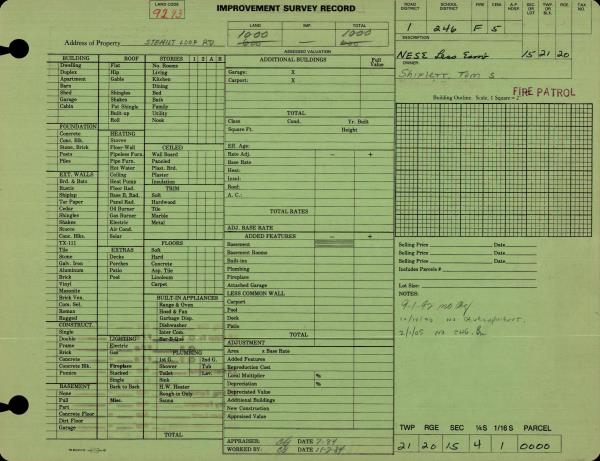 LAND CODE
9293
IMPROVEMENT SURVEY RECORD
LAND IMP. TOTAL
1000 1000
Address of Property STEMILT LOOP RD
ASSESSED VALUATION
ROAD DISTRICT SCHOOL DISTRICT FIRE CEM. SEC OR LOT TWP OR BLK RGE. TAX NO.
1 246 F 5
DESCRIPTION
NESE Less Esmt 15 21 20
OWNER:
Shiflett, Tom S
FIRE PATROL
Building Outline. Scale, 1 Square =
BUILDING ROOF STORIES 1 2 A B
Dwelling Flat No. Rooms
Duplex Hip Living
Apartment Gable Kitchen
Barn Dining
Shed Shingles Bed
Garage Shakes Bath
Cabin Pat Shingle Family
Built-up Utility
Roll Nook
FOUNDATION
Concrete HEATING
Conc. Blk. Stoves CEILED
Stone, Brick Floor-Wall Wall Board
Posts Pipeless Furn. Paneled
Piles Pipe Furn. Plast. Brd.
Hot Water Plaster
EXT. WALLS Ceiling Insulation
Brd. & Bats Heat Pump TRIM
Rustic Floor Rad. Soft
Shiplap Base B. Rad. Hardwood
Tar Paper Panel Rad. Tile
Cedar Oil Burner Marble
Shingles Gas Burner Metal
Shakes Electric
Stucco Air Cond.
Conc. Blks. Solar FLOORS
TX-111 Soft
Tile EXTRAS Hard
Stone Decks Concrete
Galv. Iron Porches Asp. Tile
Aluminum Patio Linoleum
Brick Pool Carpet
Vinyl
Masonite BUILT-IN APPLIANCES
Brick Ven. Range & Oven
Com. Sel. Hood & Fan
Roman Garbage Disp.
Rugged Dishwasher
CONSTRUCT. Inter Com.
Single Bar-B-Que
Double LIGHTING PLUMBING
Frame Electric 1st G. 2nd G.
Brick Gas Shower Tub
Concrete Toilet Lav.
Concrete Blk. Fireplace Sink
Pumice Stacked H.W. Heater
Single Rough-in Only
BASEMENT Back to Back Sauna
None
Full Misc.
Part
Concrete Floor
Dirt Floor
Garage TOTAL
ADDITIONAL BUILDINGS Full Value
Garage: X
Carport: X
TOTAL
Class Cond. Yr. Built
Square Ft. Height
Eff. Age
Rate Adj. – +
Base Rate
Heat:
Insul:
Roof:
A. C.:
TOTAL RATES
ADJ. BASE RATE
ADDED FEATURES – +
Basement
Basement Rooms
Built-ins
Plumbing
Fireplace
Attached Garage
LESS COMMON WALL
Carport
Pool
Deck
Patio
TOTAL
ADJUSTMENT
Area x Base Rate
Added Features
Reproduction Cost
Local Multiplier %
Depreciation %
Depreciated Value
Additional Buildings
New Construction
Appraised Value
APPRAISER: DATE 7-84
WORKED BY: DATE 11-2-84
Selling Price Date
Selling Price Date
Selling Price Date
Includes Parcels #
Lot Size:
NOTES:
TWP RGE SEC ¼S 1/16 S PARCEL
21 20 15 4 1 0000